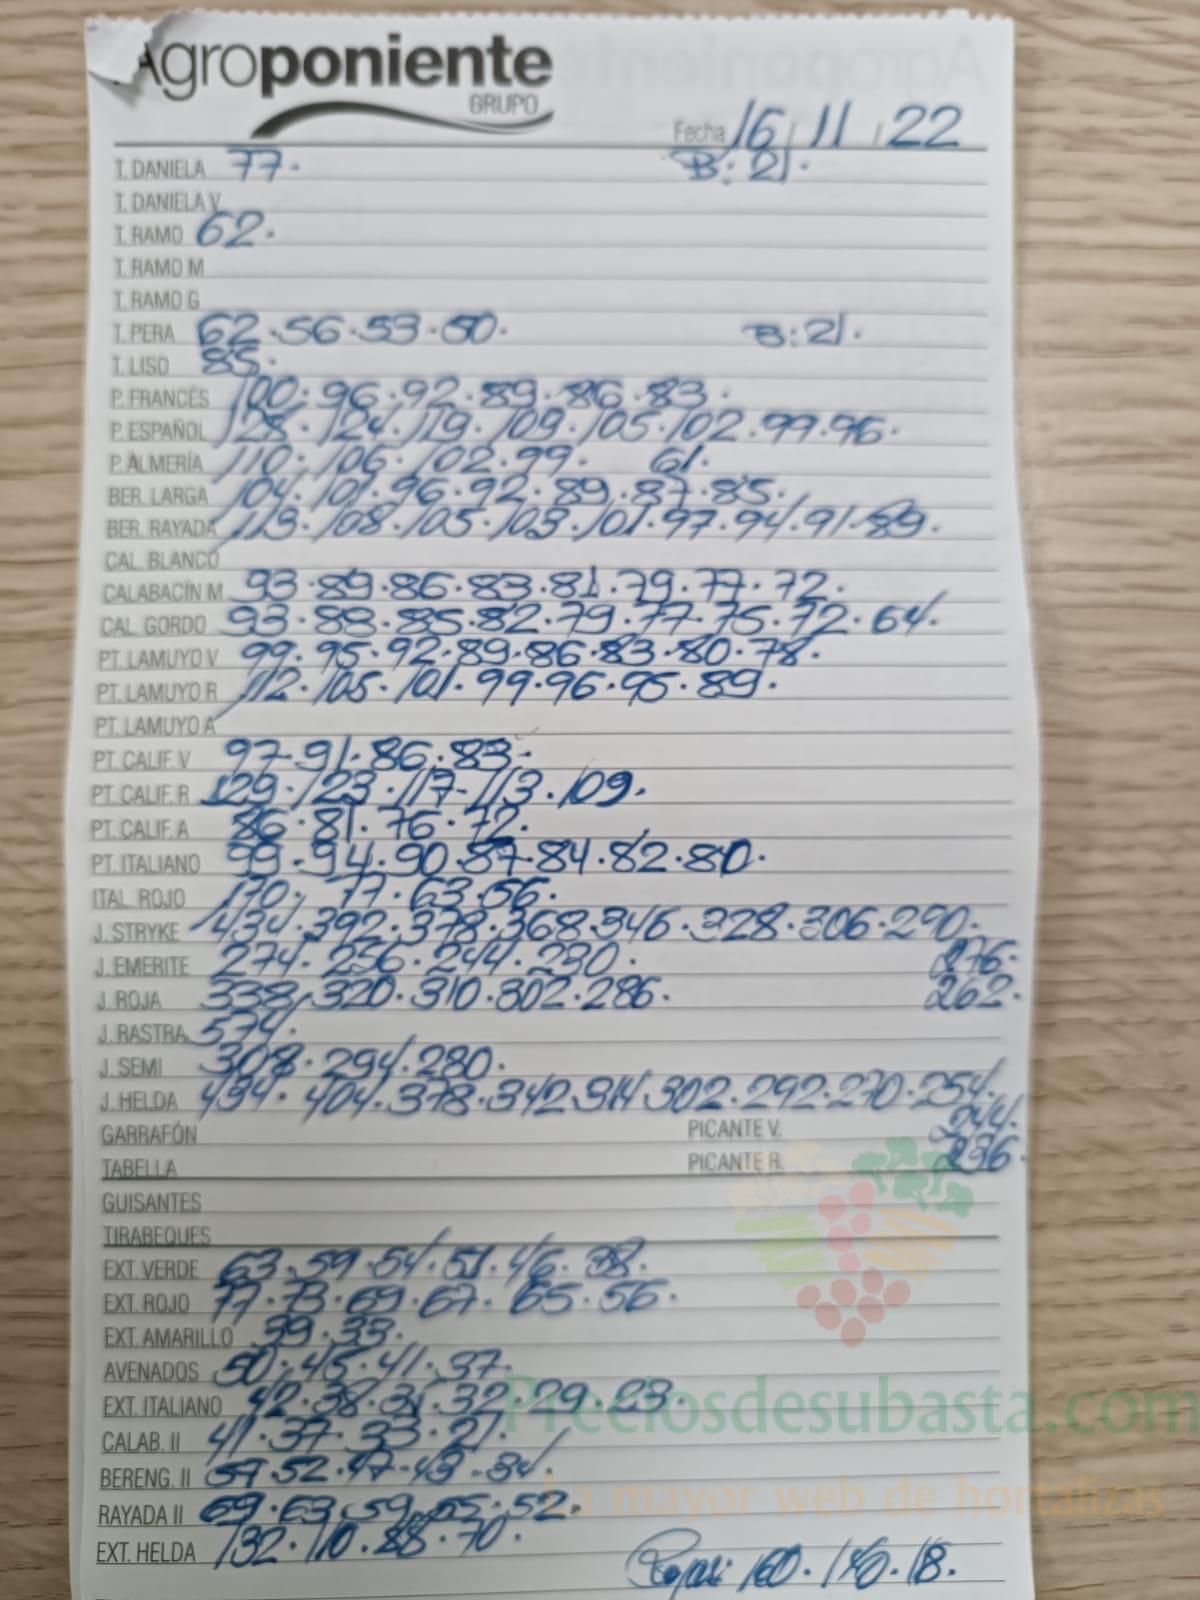 Agroponiente
GRUPO
Fecha 16 / 11 / 22
T. DANIELA 77. B: 21.
T. DANIELA V
T. RAMO 62.
T. RAMO M
T. RAMO G
T. PERA 62.56.53.50. B: 21.
T. LISO 85.
P. FRANCÉS 100.96.92.89.86.83.
P. ESPAÑOL 128.124.119.109.105.102.99.96.
P. ALMERÍA 110.106.102.99. 61.
BER. LARGA 104.101.96.92.89.87.85.
BER. RAYADA 113.108.105.103.101.97.94.91.89.
CAL. BLANCO
CALABACÍN M 93.89.86.83.81.79.77.72.
CAL. GORDO 93.88.85.82.79.77.75.72.64.
PT. LAMUYO V 99.95.92.89.86.83.80.78.
PT. LAMUYO R 112.105.101.99.96.95.89.
PT. LAMUYO A
PT. CALIF. V 97.91.86.83.
PT. CALIF. R 129.123.117.113.109.
PT. CALIF. A 86.81.76.72.
PT. ITALIANO 99.94.90.87.84.82.80.
ITAL. ROJO 170. 77.63.56.
J. STRYKE 434.392.378.368.346.328.306.290.
J. EMERITE 274.256.244.230. 276.
J. ROJA 338.320.310.302.286. 262.
J. RASTRA 574.
J. SEMI 308.294.280.
J. HELDA 434.404.378.342.314.302.292.270.254.
GARRAFÓN PICANTE V. 244.
TABELLA PICANTE R. 236.
GUISANTES
TIRABEQUES
EXT. VERDE 63.59.54.51.46.38.
EXT. ROJO 77.73.69.67.65.56.
EXT. AMARILLO 39.33.
AVENADOS 50.45.41.37.
EXT. ITALIANO 42.38.35.32.29.23.
Preciosdesubasta.com
CALAB. II 41.37.33.27.
BERENG. II 57.52.47.43.34.
La mayor web de hortalizas
RAYADA II 69.63.59.55.52.
EXT. HELDA 132.110.88.70.